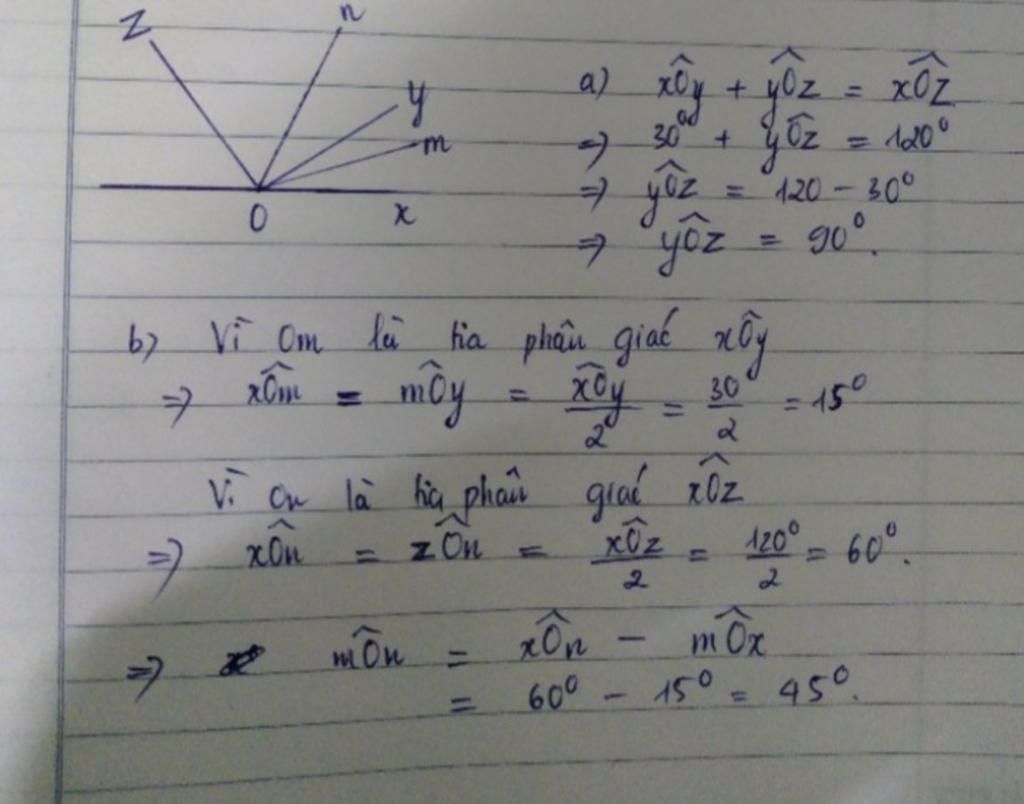 z n
y
m
O x
a) xÔy + yÔz = xÔz
=> 30⁰ + yÔz = 120⁰
=> yÔz = 120 - 30⁰
=> yÔz = 90⁰.
b) Vì Om là tia phân giác xÔy
=> xÔm = mÔy = xÔy/2 = 30/2 = 15⁰
Vì On là tia phân giác xÔz
=> xÔn = zÔn = xÔz/2 = 120⁰/2 = 60⁰.
=> mÔn = xÔn - mÔx
= 60⁰ - 15⁰ = 45⁰.